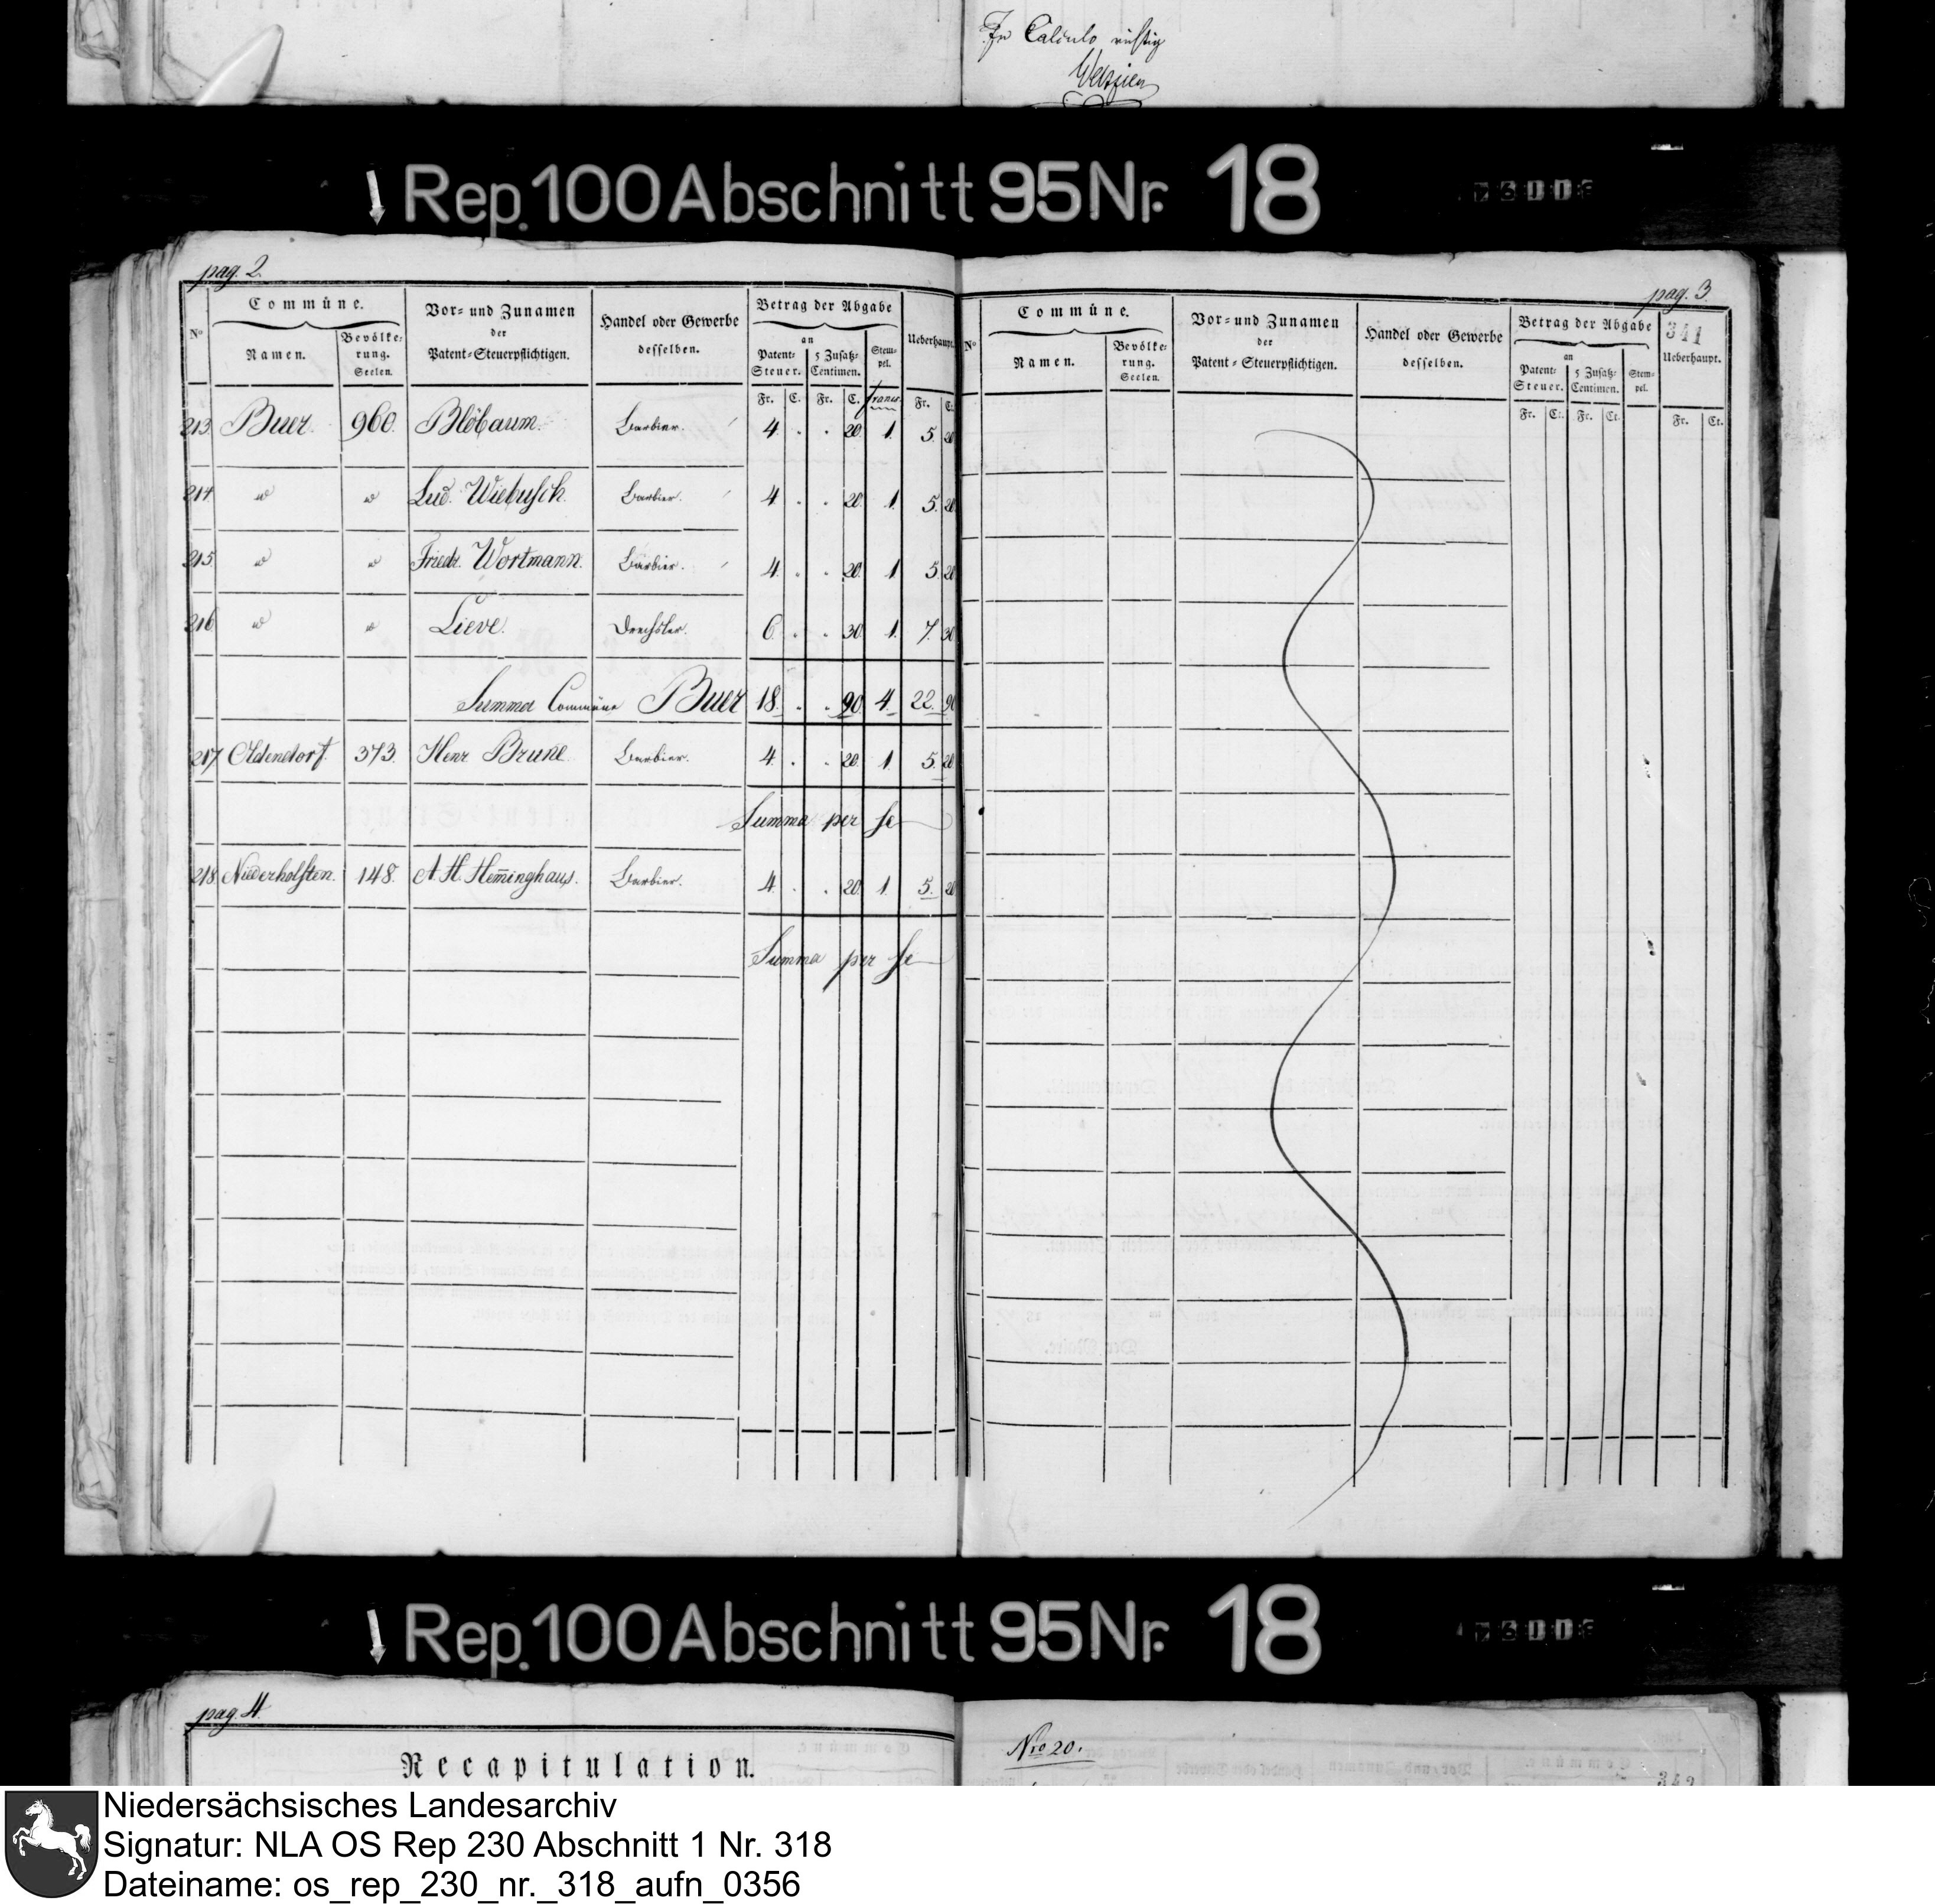 In Calculo richtig
Rep. 100 Abschnitt 95 Nr. 18
pag. 2.
No
Commüne.
Namen.
Bevölke-
rung.
Seelen.
Vor- und Zunamen
der
Patent-Steuerpflichtigen.
Handel oder Gewerbe
desselben.
Betrag der Abgabe
an
Patent-
Steuer.
5 Zusatz-
Centimen.
Stem-
pel.
Ueberhaupt.
Fr. C. Fr. C. francs Fr. C.
213 Buer. 960. Blöbaum. Barbier. 4. . . 20. 1. 5. 20
214 " " Lud. Wiebusch. Barbier. 4 . . 20. 1. 5. 20
215 " " Friedr. Wortmann. Barbier. 4. . . 20. 1 5. 20
216 " " Lieve. Drechsler. 6. . . 30. 1. 7. 30
Summa Commüne Buer 18. . . 90 4. 22. 90
217 Oldendorf. 373. Henr Brune. Barbier. 4. . . 20. 1. 5. 20
Summa per se
218. Niederholsten. 148. A. H. Hem̅inghaus. Barbier. 4. . . 20. 1 5. 20
Summa per se
pag. 3.
341
No
Commüne.
Namen.
Bevölke-
rung.
Seelen.
Vor- und Zunamen
der
Patent-Steuerpflichtigen.
Handel oder Gewerbe
desselben.
Betrag der Abgabe
an
Patent-
Steuer.
5 Zusatz-
Centimen.
Stem-
pel.
Ueberhaupt.
Fr. Ct. Fr. Ct. Fr. Ct.
Rep. 100 Abschnitt 95 Nr. 18
pag. 4.
Recapitulation.
Nro 20.
342
Niedersächsisches Landesarchiv
Signatur: NLA OS Rep 230 Abschnitt 1 Nr. 318
Dateiname: os_rep_230_nr._318_aufn_0356